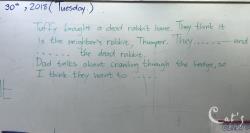 30th, 2018 (Tuesday.)
Tuffy brought a dead rabbit home. They think it
is the neighbor's rabbit, Thumper. They ------ and
------ the dead rabbit.
Dad talks about crawling through the hedge, so
I think they went to -----
Cat's